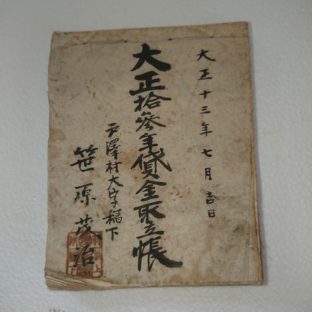 大正十三年七月吉日
大正拾參年貸金取立帳
戸澤村大字稲下
笹原茂治